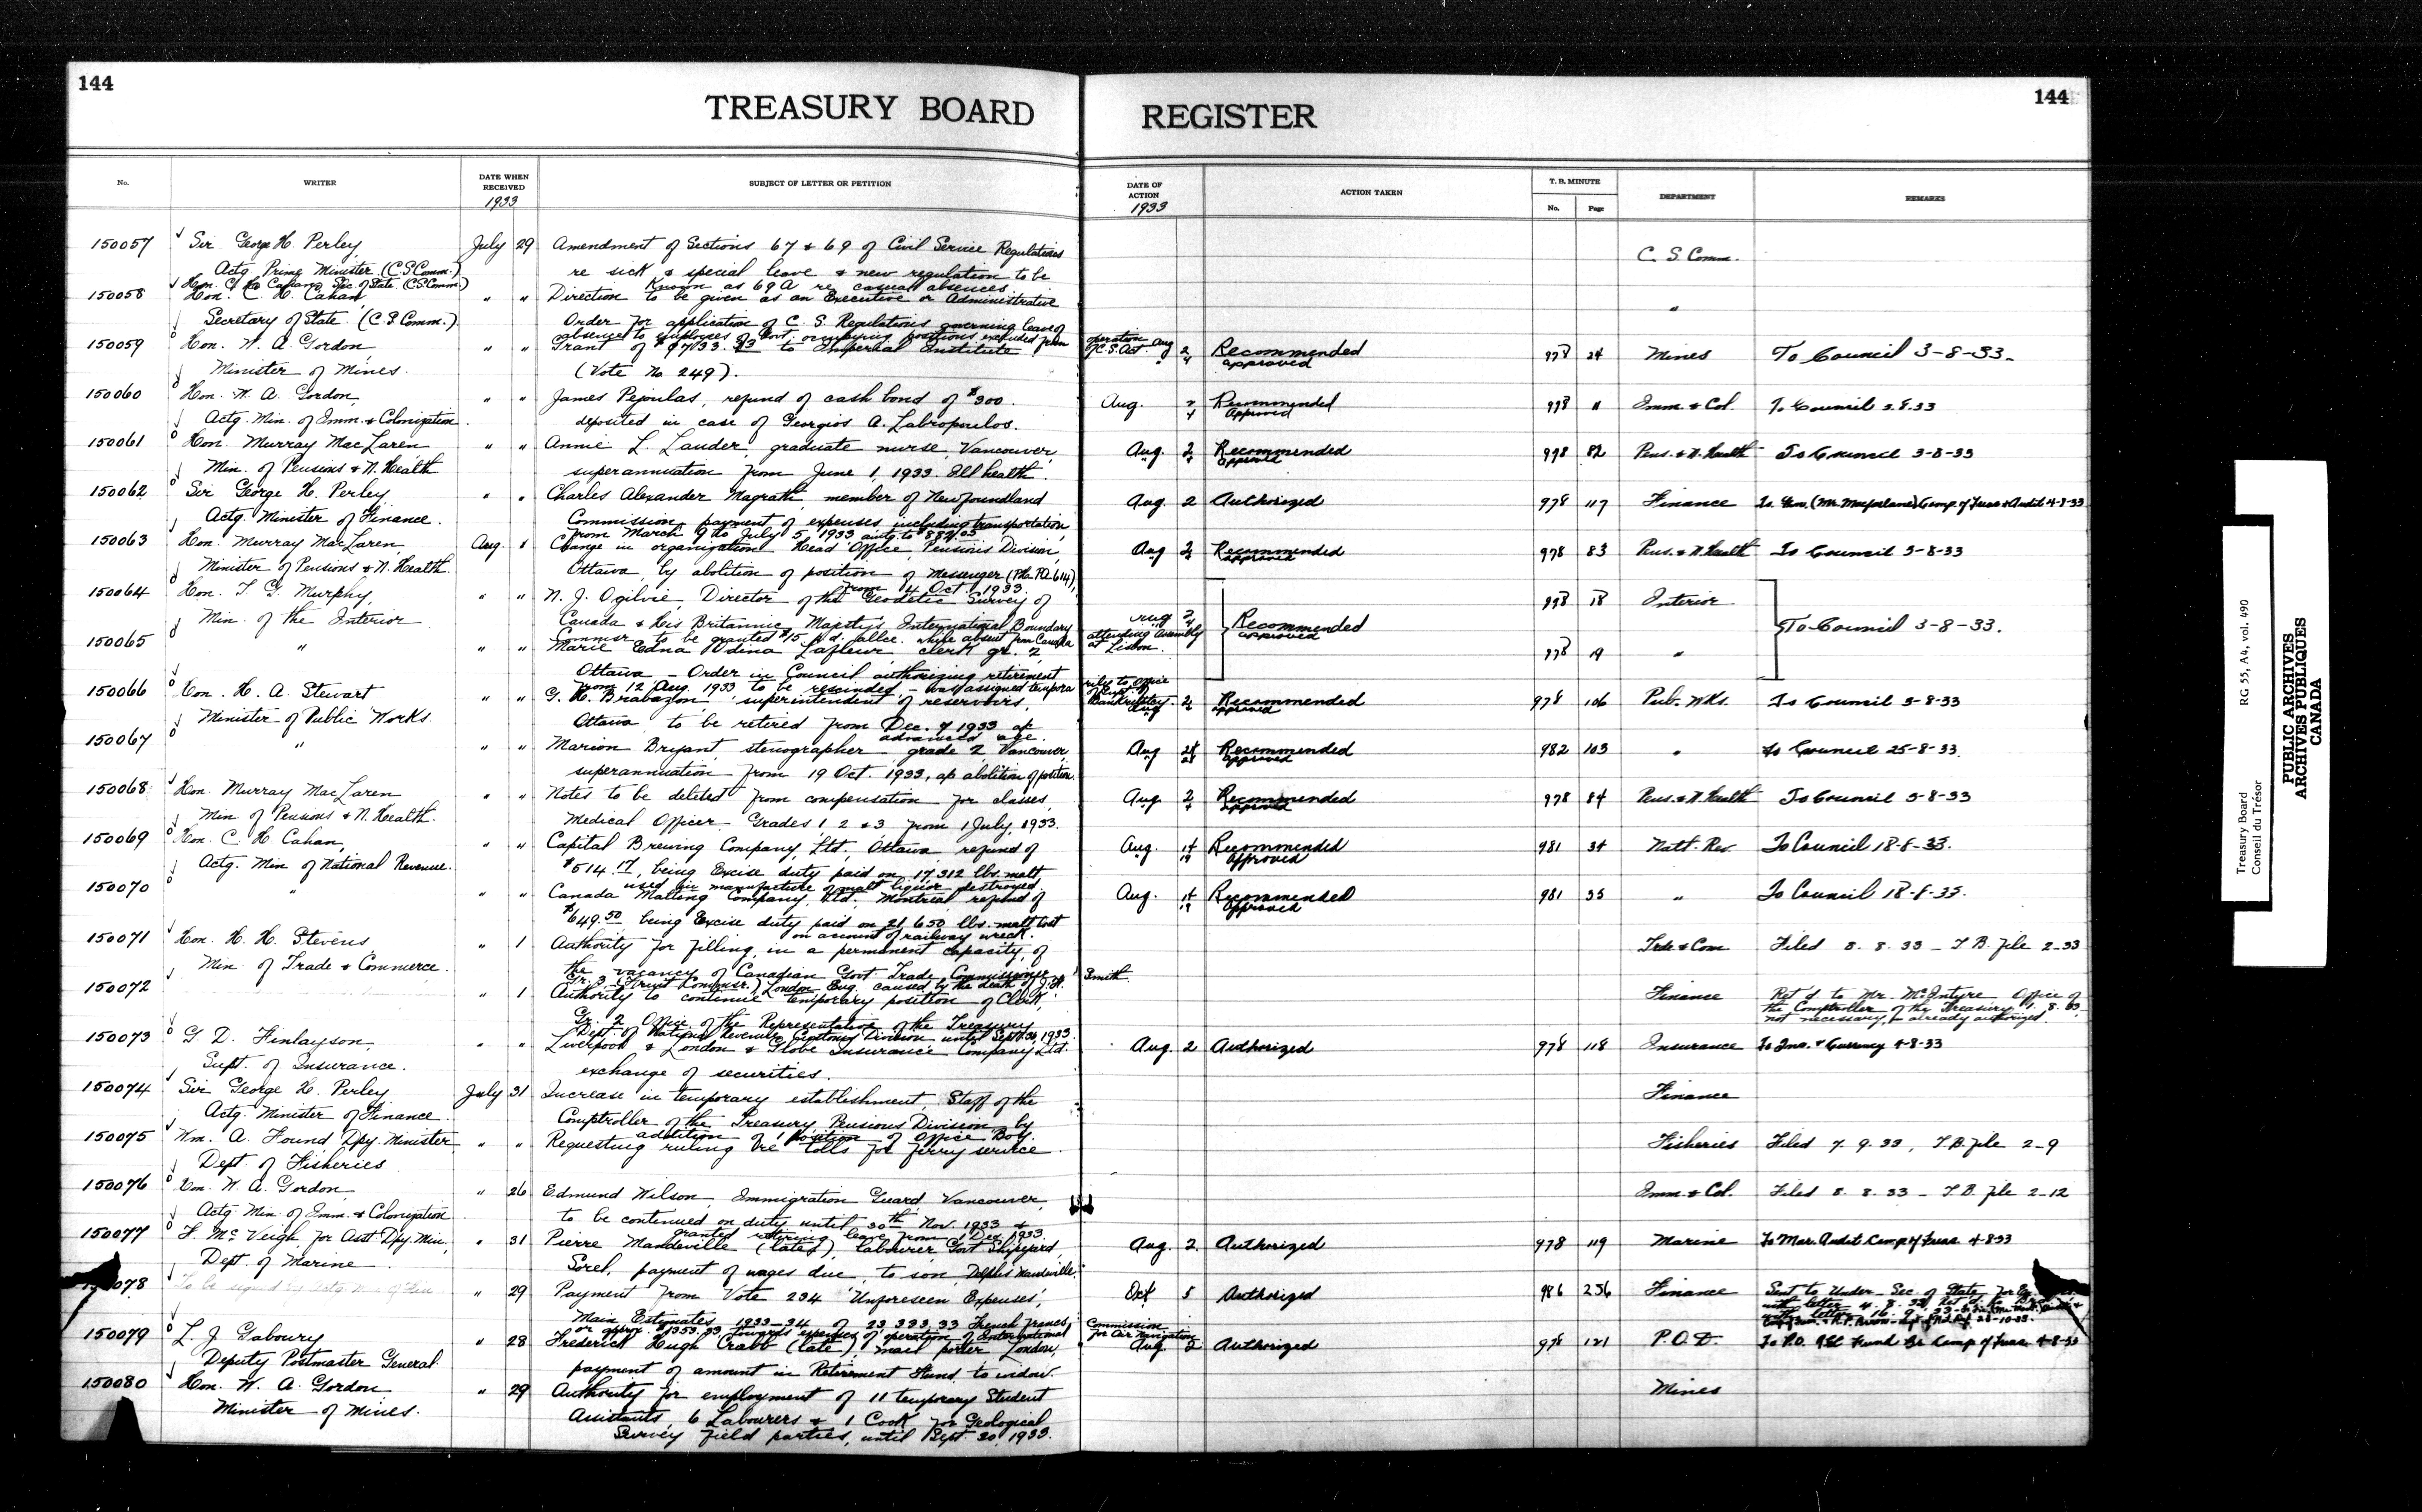 144
TREASURY BOARD REGISTER
144
No. WRITER DATE WHEN RECEIVED 1933 SUBJECT OF LETTER OR PETITION DATE OF ACTION 1933 ACTION TAKEN T. B. MINUTE No. Page DEPARTMENT REMARKS
150057 Sir George H. Perley, July 29 Amendment of Sections 67 & 69 of Civil Service Regulations C. S. Comm.
Actg. Prime Minister (C.S.Comm.) re sick & special leave & new regulation to be
known as 69A re casual absences.
150058 Hon. C. H. Cahan " " Direction to be given as an Executive or Administrative "
Secretary of State. (C.S.Comm.) Order for application of C. S. Regulations governing leave of
absence to employees of Govt. occupying positions excluded from operation of C.S. Act.
150059 Hon. W. A. Gordon, " " Grant of $9733.33 to Imperial Institute Aug 2 Recommended 978 24 Mines To Council 3-8-33.
Minister of Mines. (Vote No 249). " 4 approved
150060 Hon. W. A. Gordon, " " James Pepoulas, refund of cash bond of $300. Aug. 2 Recommended 978 11 Imm. & Col. To Council 3.8.33
Actg. Min. of Imm. & Colonization. deposited in case of Georgios A. Labropoulos. 4 Approved
150061 Hon. Murray MacLaren, " " Annie L. Lauder, graduate nurse, Vancouver, Aug. 2 Recommended 978 82 Pens. & N. Health To Council 3-8-33
Min. of Pensions & N. Health superannuation from June 1, 1933. Ill health. 4 approved
150062 Sir George H. Perley, " " Charles Alexander Magrath, member of Newfoundland Aug. 2 Authorized 978 117 Finance To Gen. (Mr. Macfarlane) Comp. of Treas & Audit 4-8-33
Actg. Minister of Finance. Commission, payment of expenses including transportation,
from March 9 to July 5, 1933 amtg to
150063 Hon. Murray MacLaren, Aug. 1 Change in organization Head Office, Pensions Division, Aug 2 Recommended 978 83 Pens. & N. Health To Council 3-8-33
Minister of Pensions & N. Health. Ottawa, by abolition of position of Messenger 4 approved
from 4 Oct. 1933
150064 Hon. T. G. Murphy, " " N. J. Ogilvie, Director of the Geodetic Survey of Aug 2 Recommended 978 18 Interior To Council 3-8-33.
Min. of the Interior Canada & His Britannic Majesty's International Boundary 4 approved
Commsr. to be granted $15 p.d. allce. while absent from Canada attending Assembly at Lisbon.
150065 " " " Marie Edna Odina Lafleur clerk gr. 2, 978 19 "
Ottawa - Order in Council authorizing retirement
from 12 Aug. 1933 to be rescinded, - was assigned temporarily to office of Supt. of Bankruptcy.
150066 Hon. H. A. Stewart " " G. H. Brabazon, superintendent of reservoirs, Aug 2 Recommended 978 106 Pub. Wks. To Council 3-8-33
Minister of Public Works. Ottawa to be retired from Dec. 7 1933 ap 4 approved
advanced age.
150067 " " " Marion Bryant, stenographer grade 2, Vancouver, Aug 24 Recommended 982 103 " To Council 25-8-33.
superannuation from 19 Oct. 1933, ap abolition of position. approved
150068 Hon. Murray MacLaren " " Notes to be deleted from compensation for classes, Aug. 2 Recommended 978 84 Pens. & N. Health To Council 3-8-33
Min. of Pensions & N. Health. Medical Officer Grades 1, 2 & 3 from 1 July, 1933. 4 approved
150069 Hon. C. H. Cahan, " " Capital Brewing Company, Ltd., Ottawa, refund of Aug. 14 Recommended 981 34 Natl. Rev. To Council 18-8-33.
Actg. Min of National Revenue. $514.17, being Excise duty paid on 17,312 lbs. malt 19 Approved
used in manufacture of malt liquor destroyed.
150070 " " " Canada Malting Company, Ltd. Montreal refund of Aug. 14 Recommended 981 35 " To Council 18-8-33.
$649.50 being Excise duty paid on 21,650 lbs. malt lost 19 Approved
on account of railway wreck.
150071 Hon. H. H. Stevens " 1 Authority for filling, in a permanent capacity, of Trde & Com Filed 8. 8. 33 - T. B. file 2-33
Min. of Trade & Commerce. the vacancy of Canadian Govt. Trade Commissioner
Gr. 3 (Fruit Commsr.), London, Eng. caused by the death of J. H. Smith.
150072 " 1 Authority to continue temporary position of Clerk, Finance Ret'd. to Mr. McIntyre Office of
Gr. 2, Office of the Representative of the Treasury the Comptroller of the Treasury
Dept. of National Revenue, Customs Division until Sept. 30, 1933. not necessary, already authorized.
150073 G. D. Finlayson, " " Liverpool & London & Globe Insurance Company Ltd. Aug. 2 Authorized 978 118 Insurance To Ins. & Currency 4-8-33
Supt. of Insurance. exchange of securities.
150074 Sir George H. Perley July 31 Increase in temporary establishment, Staff of the Finance
Actg. Minister of Finance. Comptroller of the Treasury Pensions Division, by
addition of 1 position of Office Boy.
150075 Wm. A. Found Dpy. Minister " " Requesting ruling re tolls for ferry service. Fisheries Filed 7. 9. 33, T.B. file 2-9
Dept. of Fisheries
150076 Hon. W. A. Gordon " 26 Edmund Wilson, Immigration Guard, Vancouver, Imm. & Col. Filed 8. 8. 33 - T. B. file 2-12
Actg. Min. of Imm. & Colonization. to be continued on duty until 30th Nov. 1933 &
granted retiring leave from 1 Dec. 1933.
150077 F. McVeigh, for Asst. Dpy. Min., " 31 Pierre Mandeville (late), labourer Govt Shipyard, Aug. 2. Authorized 978 119 Marine To Mar. Audit Comp of Treas 4-8-33
Dept. of Marine Sorel, payment of wages due, to son Delphis Mandeville.
078 " 29 Payment from Vote 234 'Unforeseen Expenses', Oct 5 Authorized 986 256 Finance Sent to Under-Sec. of State for
Main Estimates 1933-34 of 23,333.33 French francs,
or approx. towards expenses of operation of International Commission for Air Navigation
150079 L. J. Gaboury " 28 Frederick Hugh Crabb (late), mail porter London, Aug. 2 Authorized 978 121 P.O.D. To P.O. Fund Br Comp of Treas 4-8-33
Deputy Postmaster General. payment of amount in Retirement Fund to widow.
150080 Hon. W. A. Gordon " 29 Authority for employment of 11 temporary Student Mines
Minister of Mines. Assistants, 6 Labourers & 1 Cook for Geological
Survey field parties, until Sept. 30, 1933.
Treasury Board RG 55, A4, vol. 490
Conseil du Trésor
PUBLIC ARCHIVES
ARCHIVES PUBLIQUES
CANADA